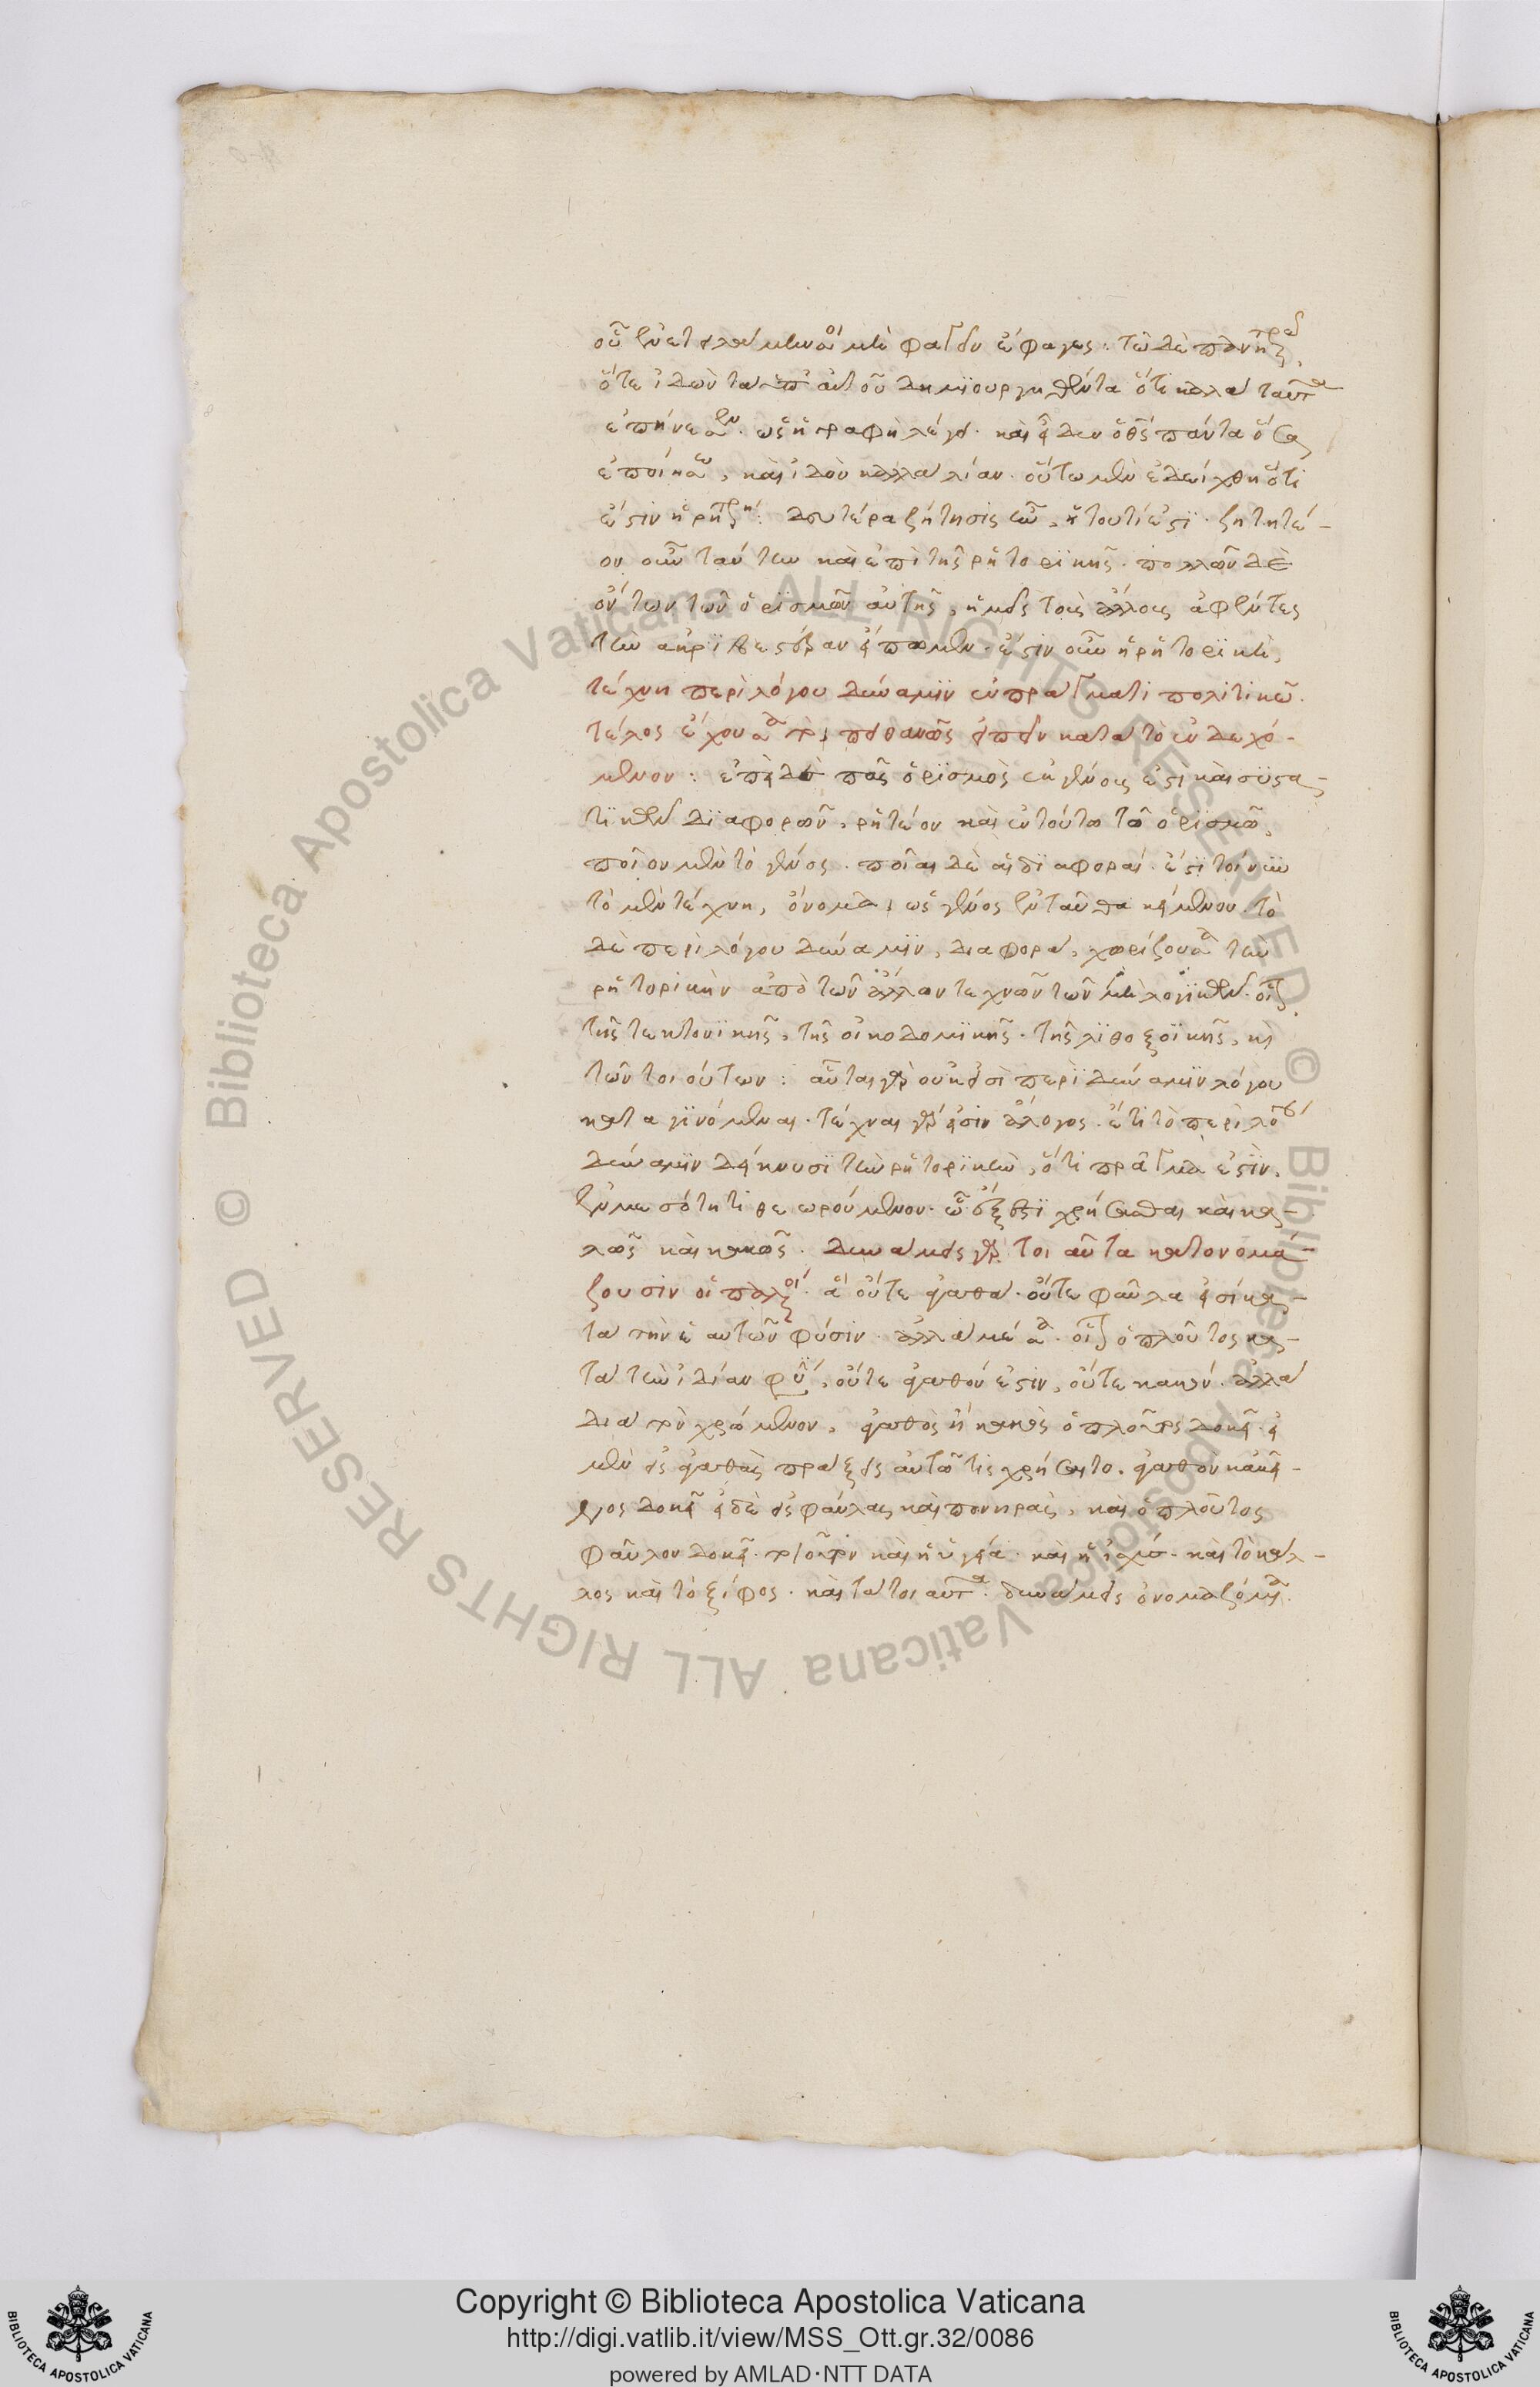 οὗ ἐνετειλάμην σοι μὴ φαγεῖν ἔφαγες. τῷ δὲ πανηγυρικῷ
ὅτε ἰδὼν τὰ ὑπ' αὐτοῦ δημιουργηθέντα ὅτι καλὰ ταῦτα
ἐπήνεσεν. ὡς ἡ γραφὴ λέγει. καὶ εἶδεν ὁ θεὸς πάντα ὅσα
ἐποίησεν, καὶ ἰδοὺ καλλὰ λίαν. οὕτω μὲν ἐδείχθη ὅτι
ἔστιν ἡ ῥητορική: δευτέρα ζήτησις ἦν, ἡ τουτὶ ἐστὶ. ζητητέ-
ον οὖν ταύτην καὶ ἐπὶ τῆς ῥητορικῆς. πολλῶν δὲ
ὄντων τῶν ὁρισμῶν αὐτῆς, ἡμεῖς τοὺς ἄλλους ἀφέντες
τὸν ἀκριβέστερον εἴπωμεν. ἔστιν οὖν ἡ ῥητορικὴ,
τέχνη περὶ λόγου δύναμιν ἐν πράγματι πολιτικῷ.
τέλος ἔχουσα τὸ πιθανῶς εἰπεῖν κατὰ τὸ ἐνδεχό-
μενον: ἐπειδὴ πᾶς ὁρισμὸς ἐκ γένους ἐστὶ καὶ συστα-
τικῶν διαφορῶν, ῥητέον καὶ ἐν τούτῳ τῷ ὁρισμῷ,
ποῖον μὲν τὸ γένος. ποῖαι δὲ αἱ διαφοραί. ἔστι τοίνυν
τὸ μὲν τέχνη, ὄνομα, ὡς γένος ἐνταῦθα κείμενον. τὸ
δὲ περὶ λόγου δύναμιν, διαφορὰ, χωρίζουσα τὴν
ῥητορικὴν ἀπὸ τῶν ἄλλων τεχνῶν τῶν μὴ λογικῶν. οἷον
τῆς τεκτονικῆς, τῆς οἰκοδομικῆς. τῆς λιθοξοϊκῆς, καὶ
τῶν τοιούτων: αὗται γὰρ οὐκ εἰσὶ περὶ δύναμιν λόγου
καταγινόμεναι. τέχναι γάρ εἰσιν ἄλογος. ἔτι τὸ περὶ λόγου
δύναμιν δείκνυσι τὴν ῥητορικὴν, ὅτι πρᾶγμα ἐστὶν,
ἐν μεσότητι θεωρούμενον. ᾧ ἔξεστι χρήσασθαι καὶ κα-
λῶς καὶ κακῶς. δυνάμεις γὰρ τοιαῦτα κατονομά-
ζουσιν οἱ παλαιοί. ἃ οὔτε ἀγαθὰ. οὔτε φαῦλα εἰσὶ κα-
τὰ τὴν ἑαυτῶν φύσιν. ἀλλὰ μέσα. οἷον ὁ πλοῦτος κα-
τὰ τὴν ἰδίαν φύσιν, οὔτε ἀγαθόν ἐστιν, οὔτε κακόν. ἀλλὰ
διὰ τὸν χρώμενον, ἀγαθὸς ἢ κακὸς ὁ πλοῦτος δοκεῖ. εἰ
μὲν εἰς ἀγαθὰς πράξεις αὐτῷ τις χρήσαιτο. ἀγαθὸν κἀκεῖ-
νος δοκεῖ εἰ δὲ εἰς φαύλας καὶ πονηρὰς, καὶ ὁ πλοῦτος
φαῦλον δοκεῖ. τοιοῦτον καὶ ἡ ὑγεία. καὶ ἡ ἰσχύς. καὶ τὸ κάλ-
λος καὶ τὸ ξίφος. καὶ τὰ τοιαῦτα. δυνάμεις ὀνομαζόμενα.
Copyright © Biblioteca Apostolica Vaticana
http://digi.vatlib.it/view/MSS_Ott.gr.32/0086
powered by AMLAD·NTT DATA
BIBLIOTECA APOSTOLICA VATICANA
BIBLIOTECA APOSTOLICA VATICANA
© Biblioteca Apostolica Vaticana ALL RIGHTS RESERVED
© Biblioteca Apostolica Vaticana ALL RIGHTS RESERVED